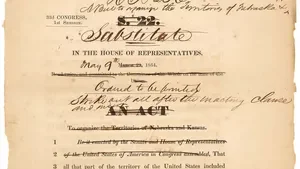 A Bill to organize the Territories of Nebraska &
33D CONGRESS,
1st SESSION.
S. 22.
Substitute
IN THE HOUSE OF REPRESENTATIVES,
May 9th MARCH 1854.
Ordered to be printed
Strike out all after the enacting clause
AN ACT
To organize the Territories of Nebraska and Kansas.
1 Be it enacted by the Senate and House of Representatives
2 of the United States of America in Congress assembled, That
3 all that part of the territory of the United States included